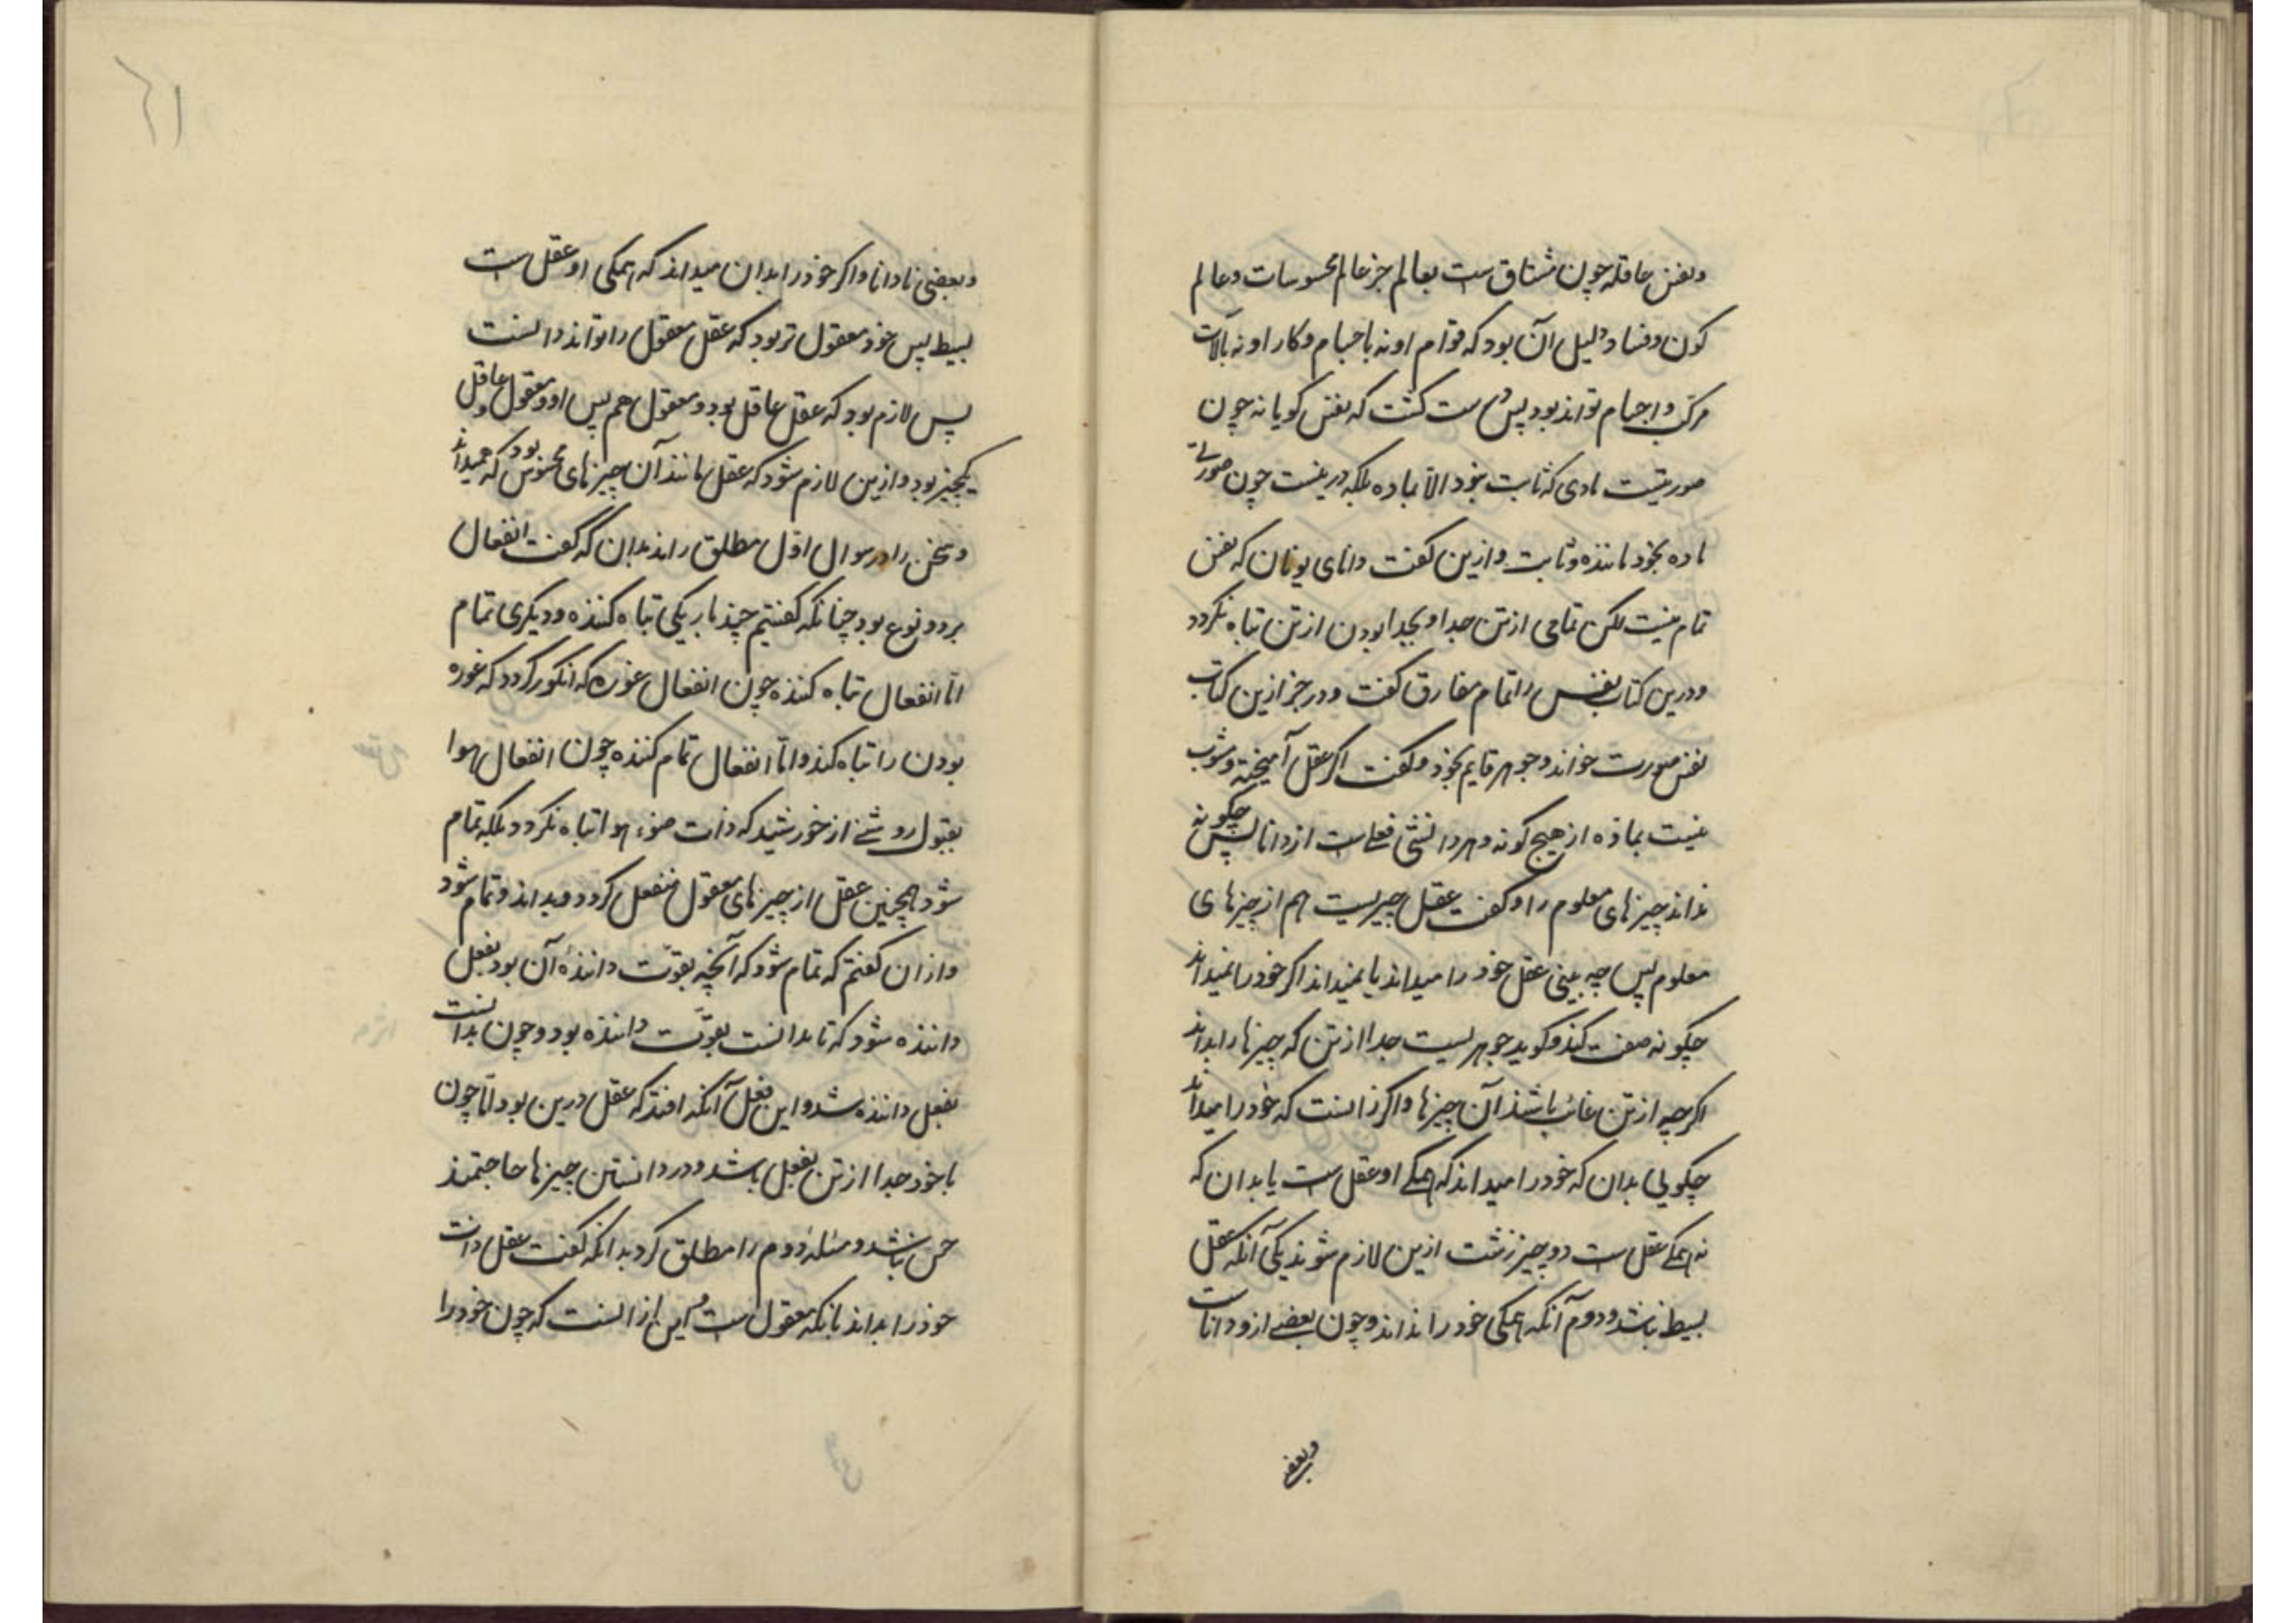 ونفس عاقله چون مشتاق ست بعالم جز عالم محسوسات وعالم
کون وفساد دلیل آن بود که قوام او نه باجسام وکار او نه بآلات
مرکب واجسام تواند بود پس درست گشت که نفس گویا نه چون
صورتیست مادی که ثابت نبود الا بماده بلکه در نیست چون صورتے
ماده بخود ماننده وثابت وازین گفت دانای یونان که نفس
تمام نیست لکن تمامی از تن جدا وبجدا بودن از تن تباه نگردد
ودرین کتاب نفس را تمام مفارق گفت ودر جز ازین کتاب
نفس صورت خواند وجوهر قایم بخود وگفت اگر عقل آمیخته ومشوب
نیست بماده از هیچ گونه وهر دانشی فعلے ست از دانا پس چگونه
نداند چیزهای معلوم را وگفت عقل چیزیست هم از چیزهای
معلوم پس چه بینی عقل خود را میداند یا نمیداند اگر خود را نمیداند
چگونه صفت کند وگوید جوهریست جدا از تن که چیزها را بداند
اگرچه از تن غائب باشند آن چیزها واگر زانست که خود را میداند
چگویی بدان که خود را میداند که همگے او عقل ست یا بدان که
نه همگے عقل ست دو چیز زشت ازین لازم شوند یکی آنکه عقل
بسیط نباشد ودوم آنکه همگی خود را نداند وچون بعضے ازو داناست
وبعضے
۶۱
وبعضی نادانا واگر خود را بدان میداند که همگی او عقل ست
بسیط پس خود معقول تر بود که عقل معقول را تواند دانست
پس لازم بود که عقل عاقل بود ومعقول هم پس او ومعقول وعاقل
یکچیز بود وازین لازم شود که عقل مانند آن چیزهای محسوس بود که میداند
وسخن را در سوال اول مطلق راند بدان که گفت انفعال
بر دو نوع بود چنانکه گفتیم چند بار یکی تباه کننده ودیگری تمام
اما انفعال تباه کننده چون انفعال غوره که انگور گردد که غوره
بودن را تباه کند واما انفعال تمام کننده چون انفعال هوا
بقبول روشنے از خورشید که ذات ضوء هوا تباه نگردد بلکه تمام
شود همچنین عقل از چیزهای معقول منفعل گردد وبداند وتمام شود
وازان گفتم که تمام شود که آنچه بقوّت داننده آن بود بفعل
داننده شود که تا بدانست بقوّت داننده بود وچون بدانست
بفعل داننده شد واین فعل آنگه افتد که عقل درین بود امّا چون
با خود جدا از تن بفعل باشد ودر دانستن چیزها حاجتمند
حس نباشد ومسئله دوم را مطلق کرد بدانکه گفت عقل ذات
خود را بداند بانکه معقول ست واین ازانست که چون خود را